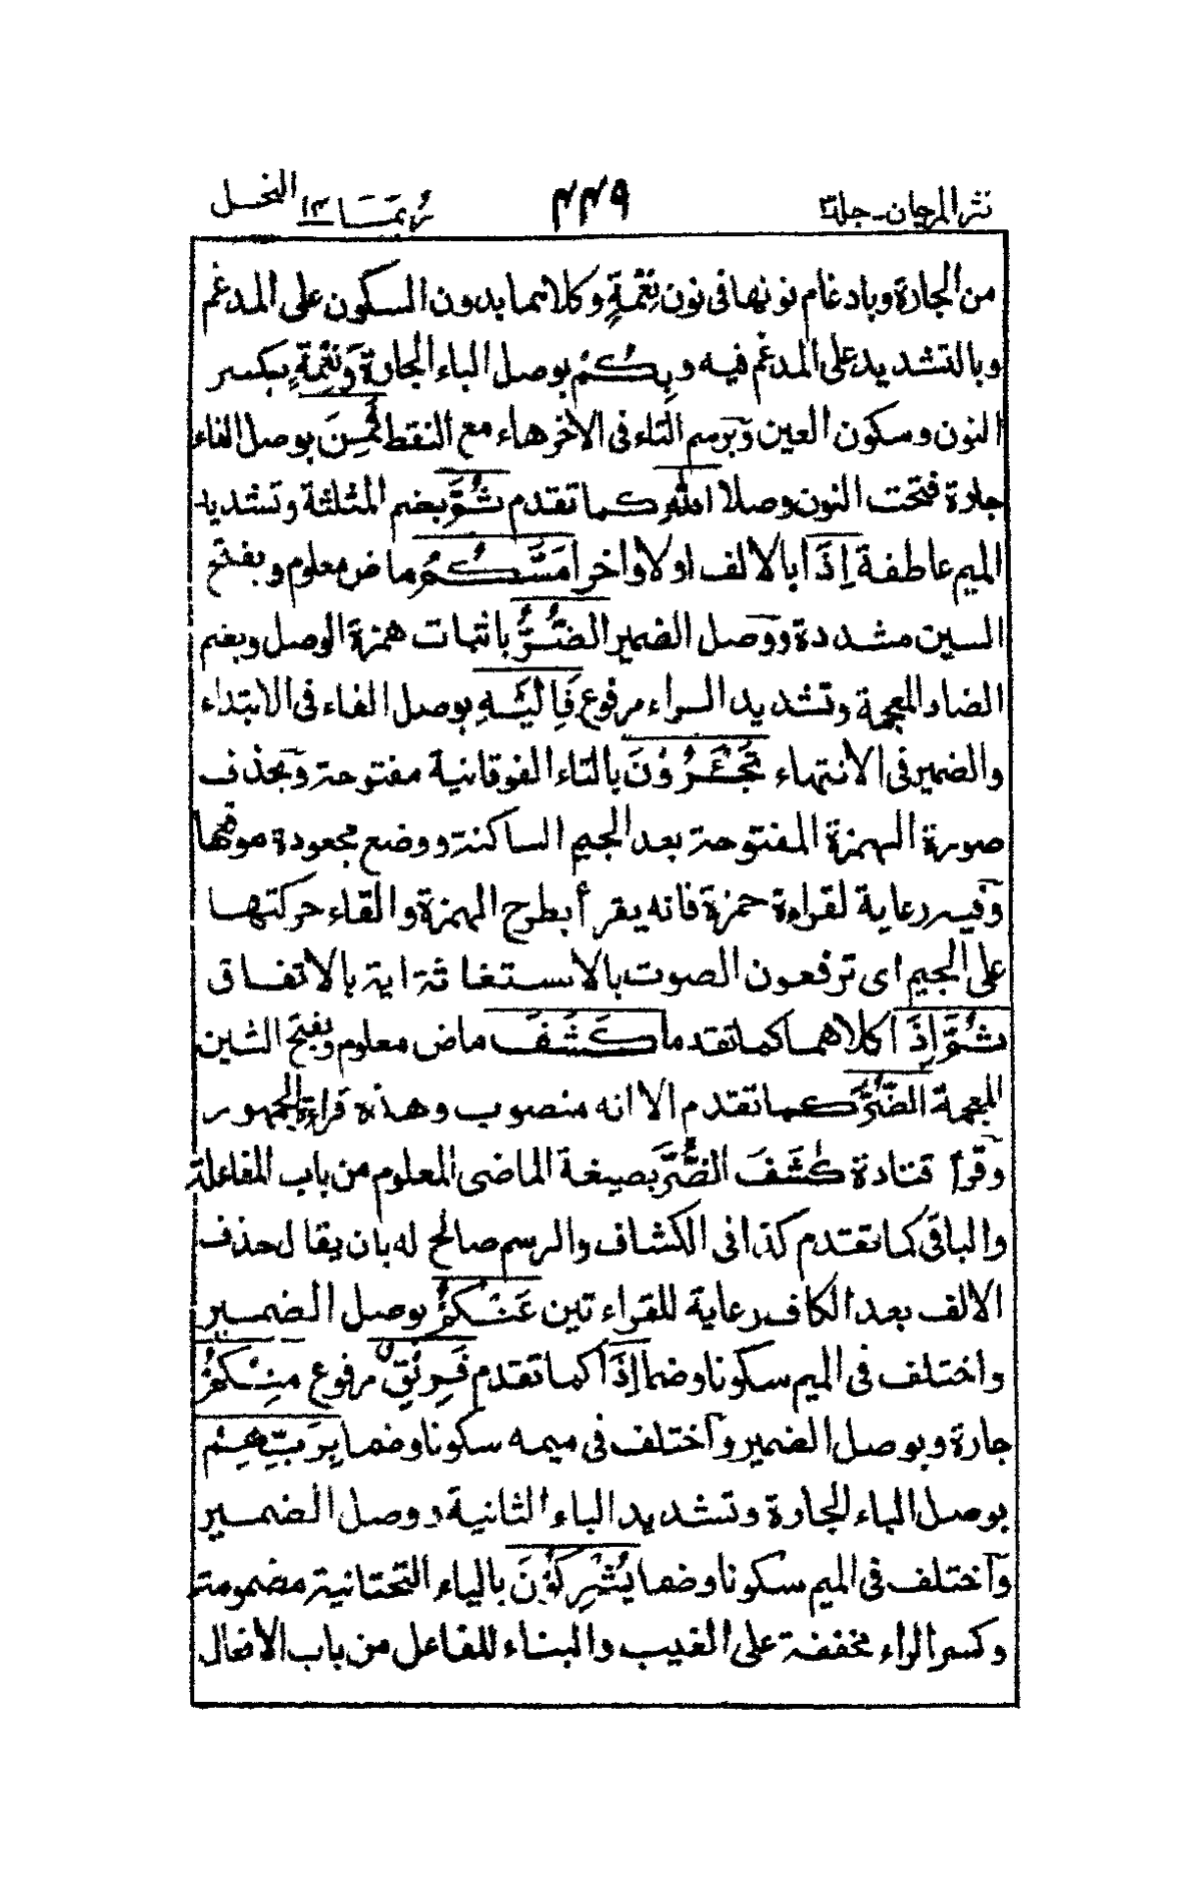 نثر المرجان - جلد٣ ٤٤٩ ربما ١٤ النحل
من الجارة وبادغام نونها فى نون نِعْمَةٍ وكلاهما بدون السكون على المدغم
وبالتشديد على المدغم فيه وبِكُمْ بوصل الباء الجارة وَنِعْمَةٍ بكسر
النون وسكون العين وبرسم التاء فى الاٰخرهاء مع النقط فَمِنَ بوصل الفاء
جارة فتحت النون وصلا اللّٰهِ كما تقدم ثُمَّ بضم المثلثة وتشديد
الميم عاطفة اِذَا بالالف اولا واخرا مَسَّكُمُ ماض معلوم وبفتح
السين مشددة ووصل الضمير الضُّرُّ باثبات همزة الوصل وبضم
الضاد المعجمة وتشديد الراء مرفوع فَاِلَيْهِ بوصل الفاء فى الابتداء
والضمير فى الانتهاء تَجْـَٔرُوْنَ بالتاء الفوقانية مفتوحة وبحذف
صورة الهمزة المفتوحة بعد الجيم الساكنة ووضع مجعودة موقعها
وفيه رعاية لقراءة حمزة فانه يقرأ بطرح الهمزة والقاء حركتها
على الجيم اى ترفعون الصوت بالاستغاثة اية بالاتفاق
ثُمَّ اِذَا كلاهما كما تقدما كَشَفَ ماض معلوم وبفتح الشين
المعجمة الضُّرَّ كما تقدم الا انه منصوب وهذه قراءة الجمهور
وقرأ قتادة كٰشَفَ الضُّرَّ بصيغة الماضى المعلوم من باب المفاعلة
والباقى كما تقدم كذا فى الكشاف والرسم صالح له بان يقال حذف
الالف بعد الكاف رعاية للقراءتين عَنْكُمْ بوصل الضمير
واختلف فى الميم سكونا وضما اِذَا كما تقدم فَرِيْقٌ مرفوع مِنْكُمْ
جارة وبوصل الضمير واختلف فى ميمه سكونا وضما بِرَبِّهِمْ
بوصل الباء الجارة وتشديد الباء الثانية ووصل الضمير
واختلف فى الميم سكونا وضما يُشْرِكُوْنَ بالياء التحتانية مضمومة
وكسر الراء مخففة على الغيب والبناء للفاعل من باب الافعال